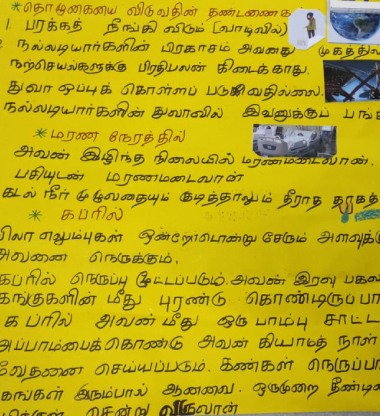 *தொழுகையை விடுவதின் தண்டனைகள்
1. பரக்கத் நீங்கி விடும் (வாழ்வில்)
2. நல்லடியார்களின் பிரகாசம் அவனது முகத்தில்
நற்செயல்களுக்கு பிரதிபலன் கிடைக்காது.
துவா ஒப்புக் கொள்ளப் படுவதில்லை.
நல்லடியார்களின் துவாவில் இவனுக்குப் பங்
* மரண நேரத்தில்
அவன் இழிந்த நிலையில் மரணமடைவான்.
பசியுடன் மரணமடைவான்
கடல் நீர் முழுவதையும் குடித்தாலும் தீராத தாகத்
* கபரில்
விலா எலும்புகள் ஒன்றோடொன்று சேரும் அளவுக்கு
அவனை நெருக்கும்.
கப்ரில் நெருப்பு மூட்டப்படும். அவன் இரவு பகல
கங்குகளின் மீது புரண்டு கொண்டிருப்பா
கப்ரில் அவன் மீது ஒரு பாம்பு சாட்ட
அப்பாம்பைக்கொண்டு அவன் கியாமத் நாள்
வேதனை செய்யப்படும். கண்கள் நெருப்பா
கங்கள் இரும்பால் ஆனவை. ஒருமுறை தீண்டின
சென்று விடுவான்